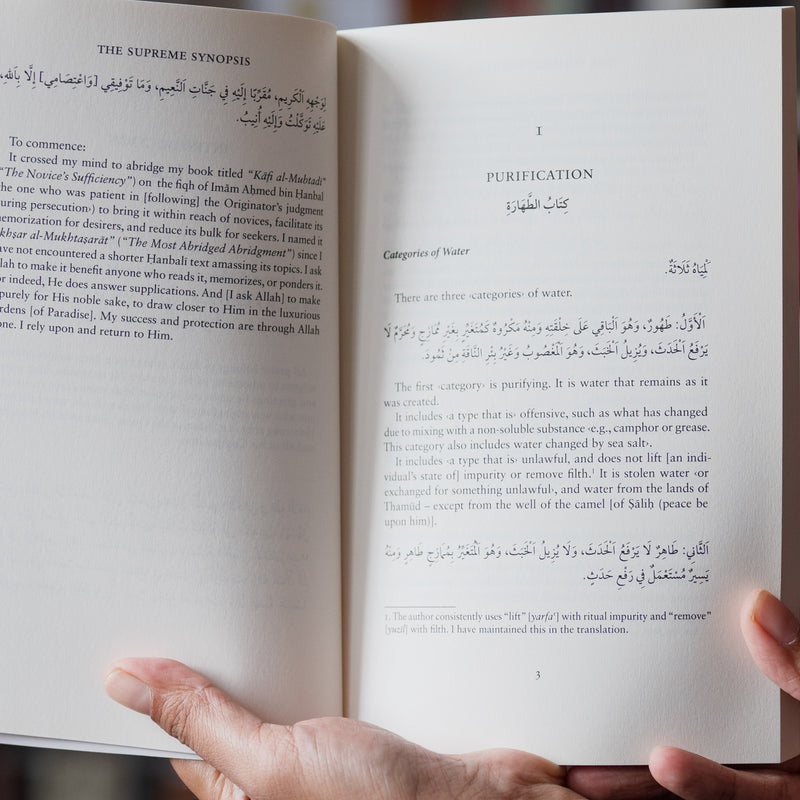 THE SUPREME SYNOPSIS
لِوَجْهِهِ ٱلْكَرِيمِ، مُقَرِّبًا إِلَيْهِ فِي جَنَّاتِ ٱلنَّعِيمِ، وَمَا تَوْفِيقِي [وَاعْتِصَامِي] إِلَّا بِٱللهِ،
عَلَيْهِ تَوَكَّلْتُ وَإِلَيْهِ أُنِيبُ.
To commence:
It crossed my mind to abridge my book titled “Kāfi al-Mubtadi”
“The Novice’s Sufficiency”) on the fiqh of Imām Aḥmed bin Ḥanbal
he one who was patient in [following] the Originator’s judgment
uring persecution›) to bring it within reach of novices, facilitate its
emorization for desirers, and reduce its bulk for seekers. I named it
khṣar al-Mukhtaṣarāt” (“The Most Abridged Abridgment”) since I
ave not encountered a shorter Ḥanbalī text amassing its topics. I ask
lah to make it benefit anyone who reads it, memorizes, or ponders it.
or indeed, He does answer supplications. And [I ask Allah] to make
purely for His noble sake, to draw closer to Him in the luxurious
rdens [of Paradise]. My success and protection are through Allah
one. I rely upon and return to Him.
I
PURIFICATION
كِتَابُ الطَّهَارَةِ
Categories of Water
ٱلْمِيَاهُ ثَلَاثَةٌ.
There are three ‹categories› of water.
ٱلْأَوَّلُ: طَهُورٌ، وَهُوَ ٱلْبَاقِي عَلَى خِلْقَتِهِ وَمِنْهُ مَكْرُوهٌ كَمُتَغَيِّرٍ بِغَيْرِ مُمَازِجٍ وَمُحَرَّمٌ لَا
يَرْفَعُ ٱلْحَدَثَ، وَيُزِيلُ ٱلْخَبَثَ، وَهُوَ ٱلْمَغْصُوبُ وَغَيْرُ بِئْرِ النَّاقَةِ مِنْ ثَمُودَ.
The first ‹category› is purifying. It is water that remains as it
was created.
It includes ‹a type that is› offensive, such as what has changed
due to mixing with a non-soluble substance ‹e.g., camphor or grease.
This category also includes water changed by sea salt›.
It includes ‹a type that is› unlawful, and does not lift [an indi-
vidual’s state of] impurity or remove filth.¹ It is stolen water ‹or
exchanged for something unlawful›, and water from the lands of
Thamūd – except from the well of the camel [of Ṣāliḥ (peace be
upon him)].
ٱلثَّانِي: طَاهِرٌ لَا يَرْفَعُ ٱلْحَدَثَ، وَلَا يُزِيلُ ٱلْخَبَثَ، وَهُوَ ٱلْمُتَغَيِّرُ بِمُمَازِجٍ طَاهِرٍ وَمِنْهُ
يَسِيرٌ مُسْتَعْمَلٌ فِي رَفْعِ حَدَثٍ.
1. The author consistently uses “lift” [yarfaʿ] with ritual impurity and “remove”
[yuzīl] with filth. I have maintained this in the translation.
3